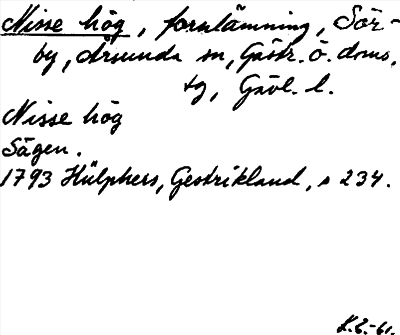 Nisse hög, fornlämning, Sör-
by, Årsunda sn, Gästr. ö. doms.
tg, Gävl. l.
Nisse hög
Sägen.
1793 Hülphers, Gestrikland, s 234.